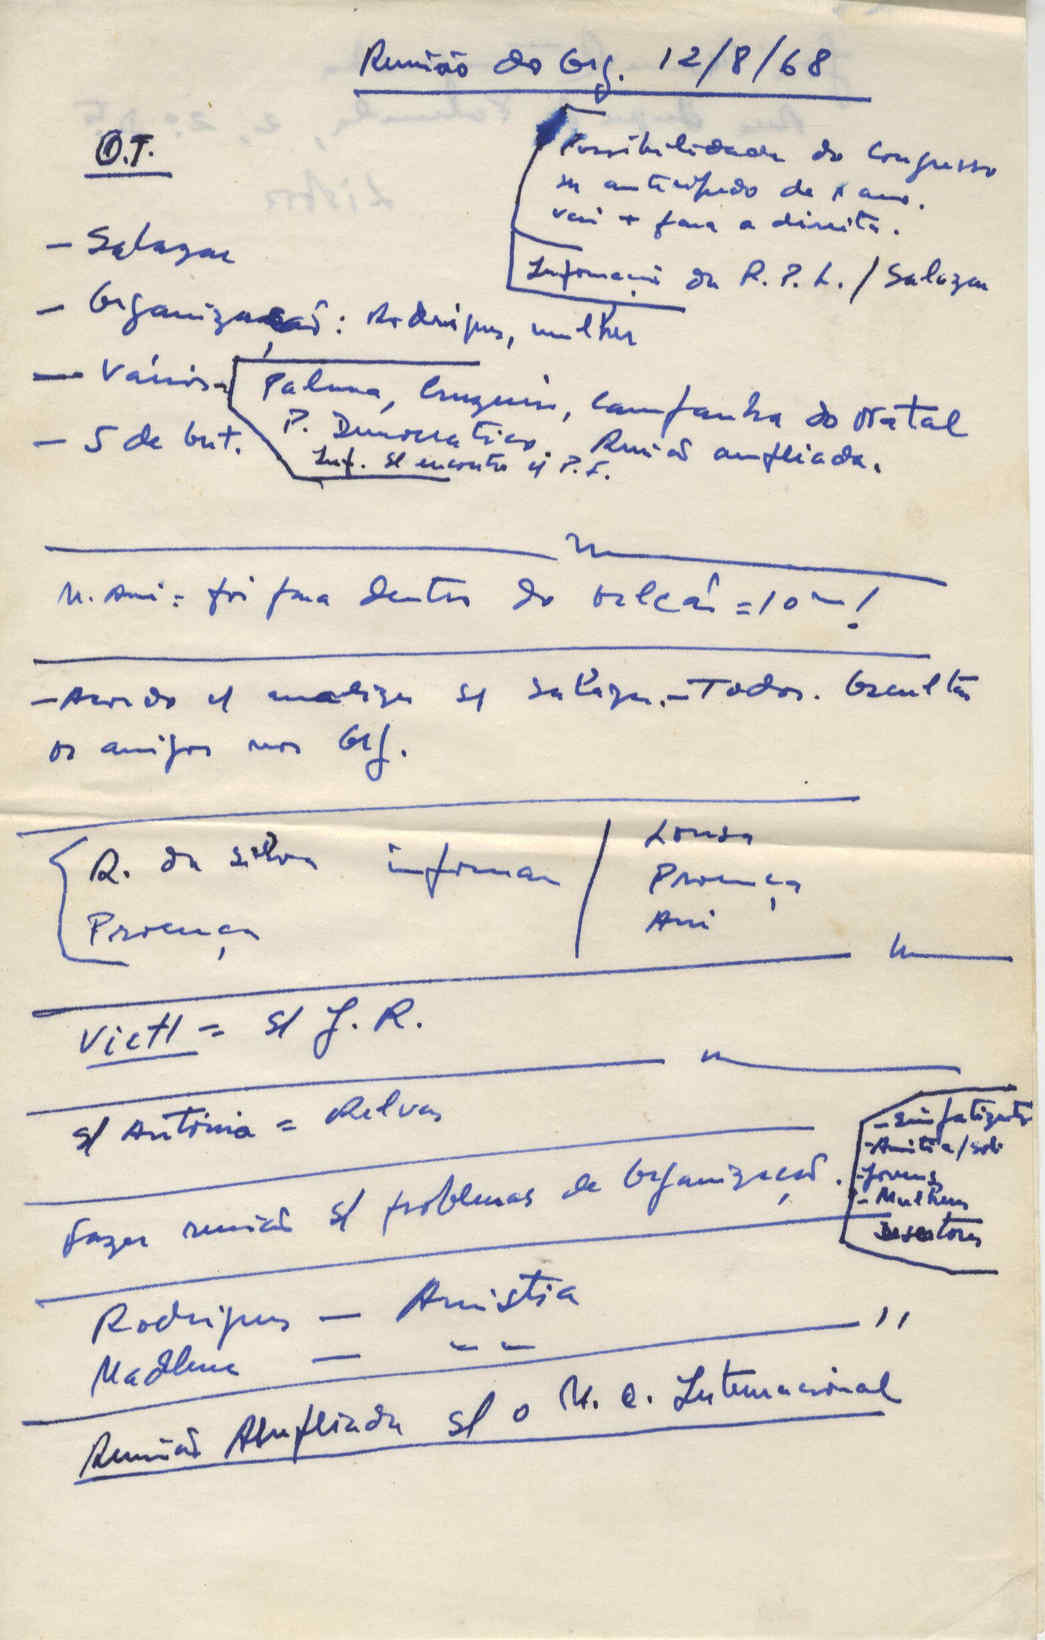 Reunião do Org. 12/8/68
O.T.
Possibilidade do Congresso
ser antecipado de 1 ano.
vai + para a direita.
Informação da R.P.L. / Salazar
- Salazar
- Organização: Rodrigues, mulher
- Vários
Palma, Cruzeiro, Campanha do Natal
P. Democratico. Reunião ampliada.
Inf. s/ encontro c/ P.S.
- 5 de Out.
foi para dentro do = 10
- Acordo c/ s/ Salazar. - Todos.
os amigos nos Org.
R. da Silva informar
Proença
Lousa
Proença
Ani
= s/ J.R.
s/ Antónia = Relvas
Fazer reunião s/ problemas de Organização.
- Simpatizantes
- Amitia/sob
- Jovens
- Mulheres
Desertores
Rodrigues — Amistia
Madlena — " "
Reunião Ampliada s/ o M. C. Internacional